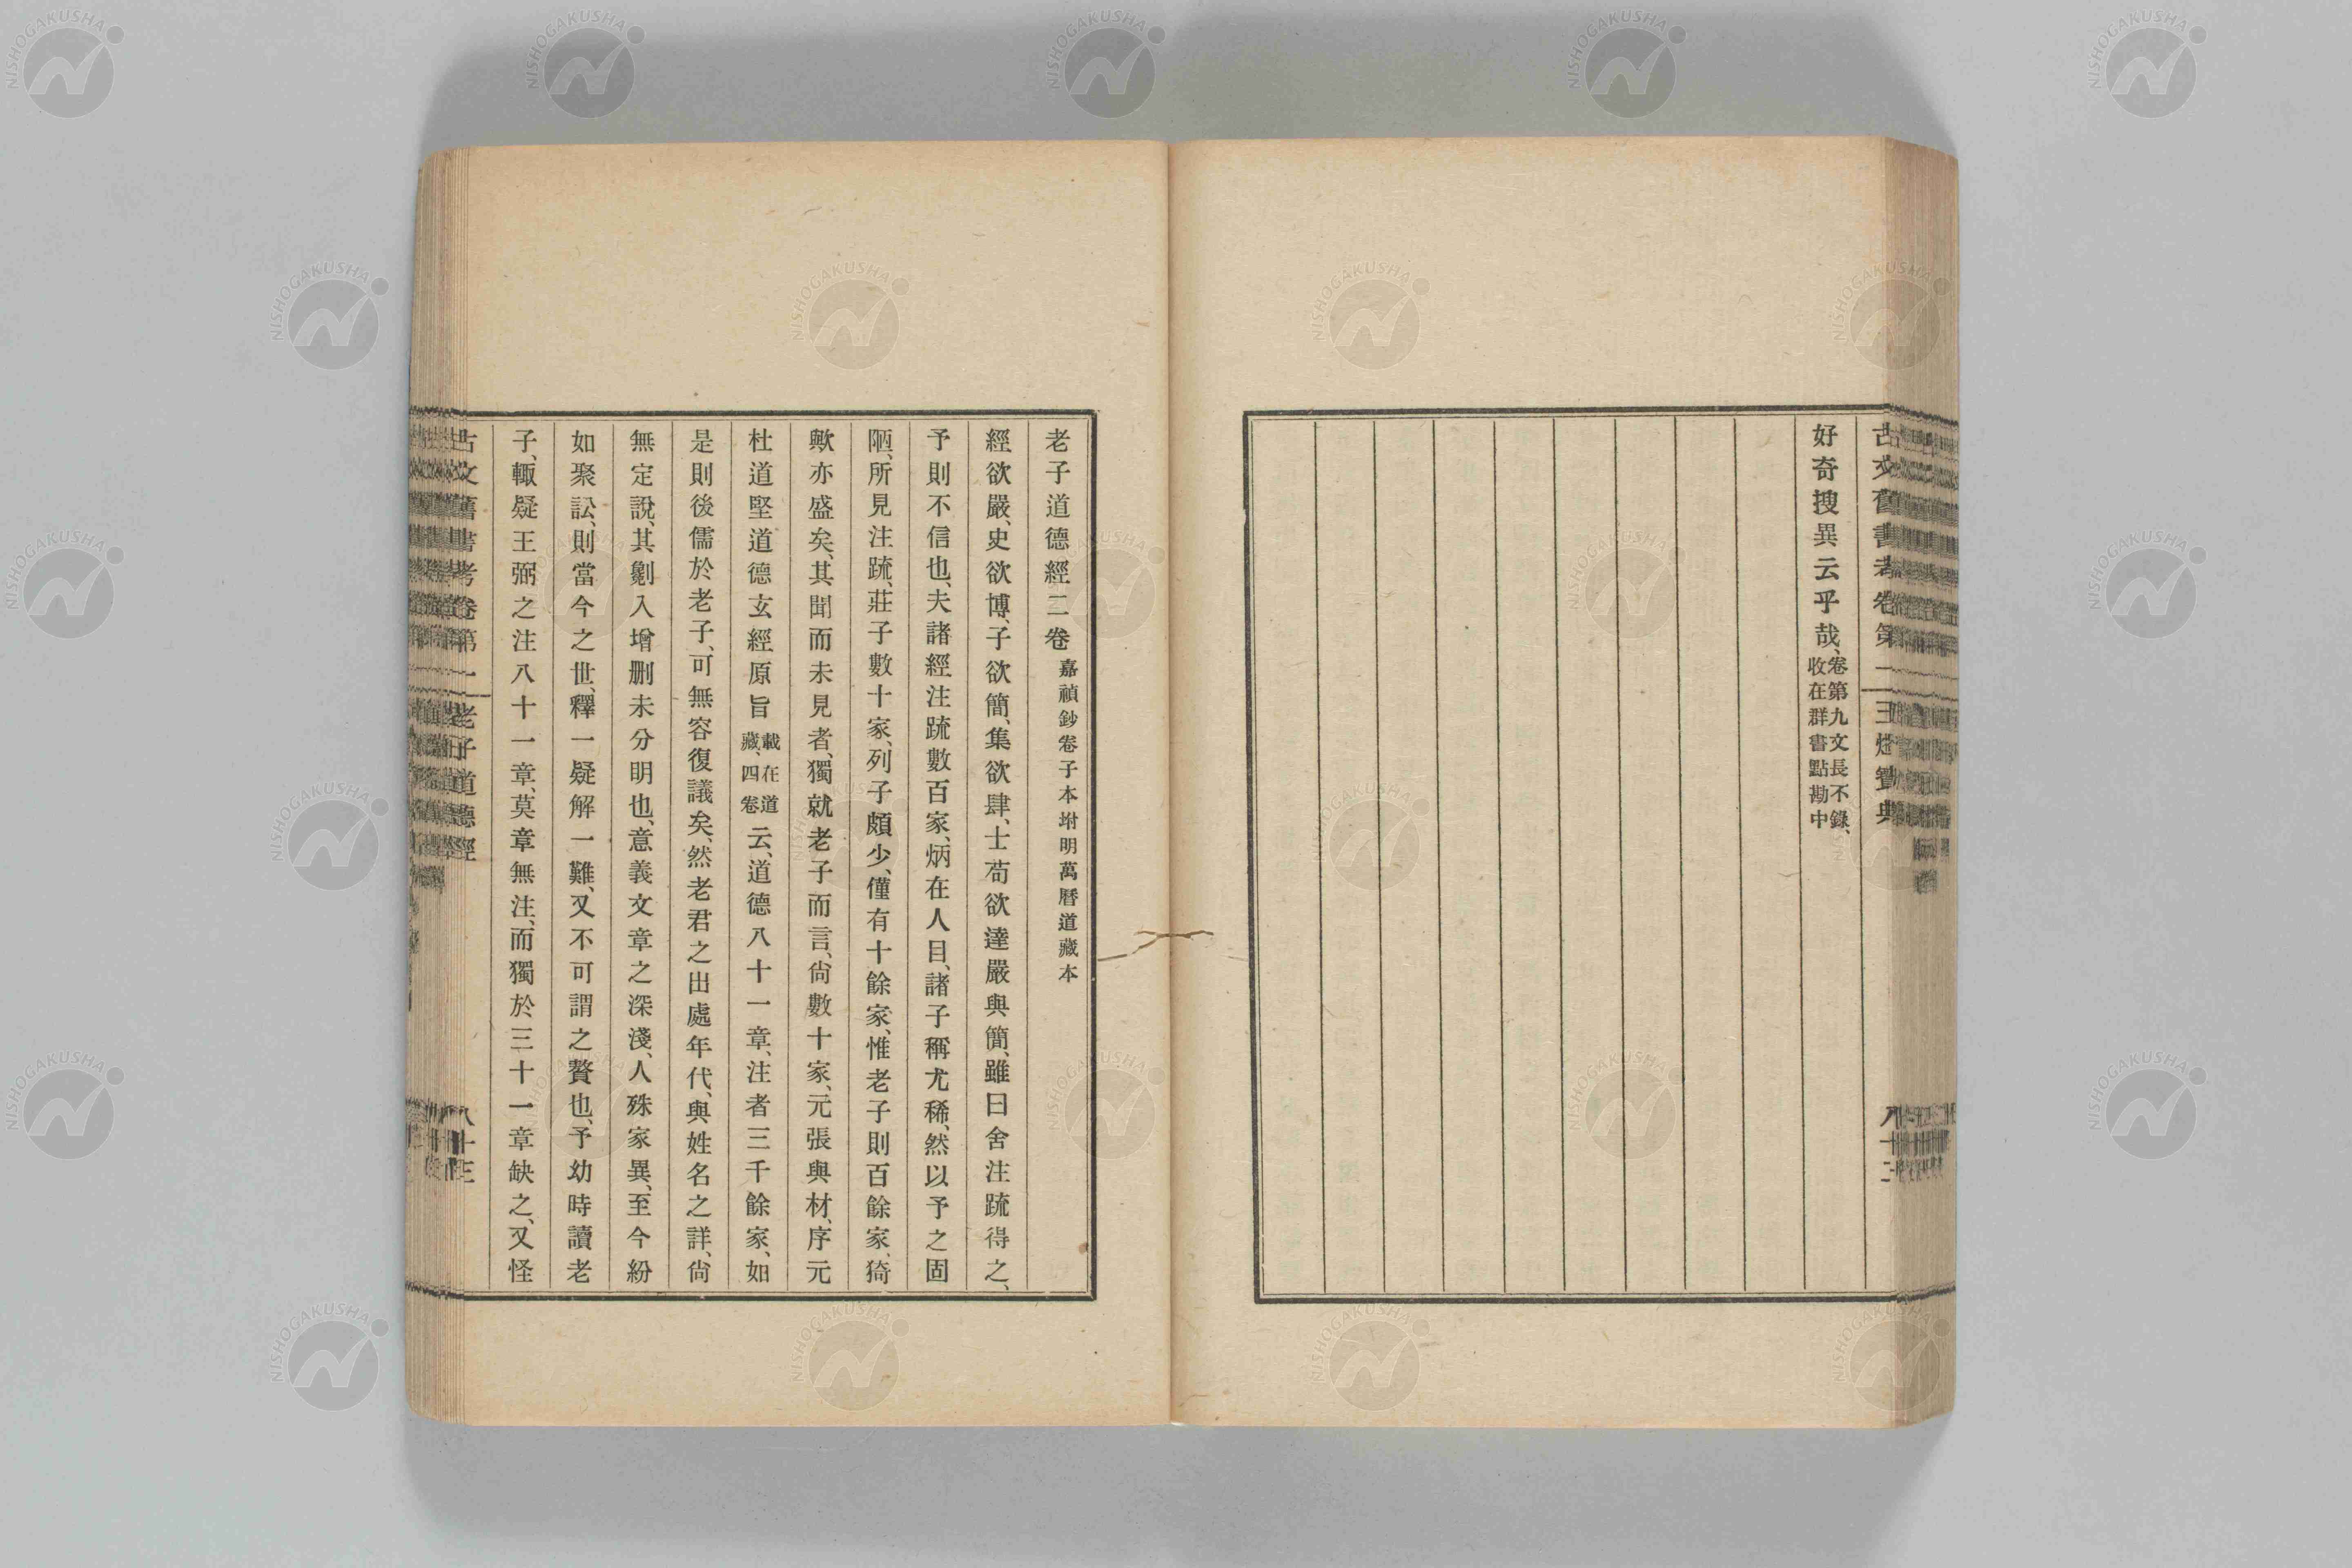 古文舊書考卷第一 玉燭寶典
好奇搜異云乎哉、卷第九文長不錄、收在群書點勘中
老子道德經二卷 嘉禎鈔卷子本坿明萬曆道藏本
經欲嚴、史欲博、子欲簡、集欲肆、士苟欲達嚴與簡、雖曰舍注疏得之、
予則不信也、夫諸經注疏數百家、炳在人目、諸子稱尤稀、然以予之固
陋、所見注疏、莊子數十家、列子頗少、僅有十餘家、惟老子則百餘家、猗
歟亦盛矣、其聞而未見者、獨就老子而言、尙數十家、元張與材、序元
杜道堅道德玄經原旨載在道藏、四卷云、道德八十一章、注者三千餘家、如
是則後儒於老子、可無容復議矣、然老君之出處年代、與姓名之詳、尙
無定說、其劖入增删未分明也、意義文章之深淺、人殊家異、至今紛
如聚訟、則當今之世、釋一疑解一難、又不可謂之贅也、予幼時讀老
子、輙疑王弼之注八十一章、莫章無注、而獨於三十一章缺之、又怪
古文舊書考卷第一 老子道德經 八十三
NISHOGAKUSHA